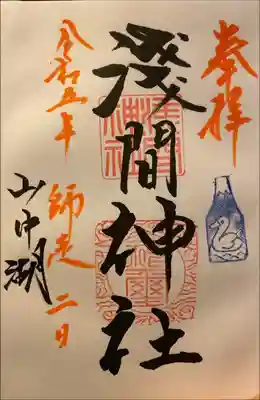 奉拝
淺間神社
令和五年
師走二日
山中湖